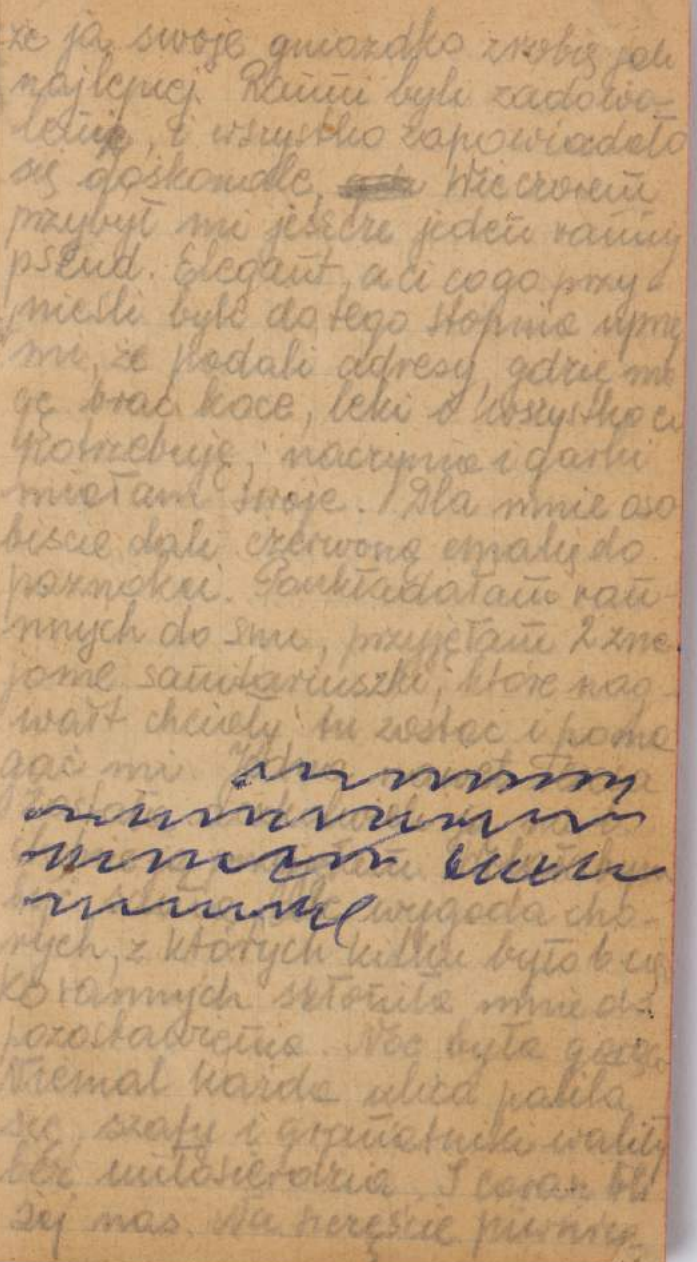 że ja swoje gniazdko zrobię jak
najlepiej. Ranni byli zadowo-
leni, i wszystko zapowiadało
się doskonale, Wieczorem
przybył mi jeszcze jeden ranny
pseud. Elegant, a ci co go przy-
nieśli byli do tego stopnia uprzej
mi, że podali adresy, gdzie mo
gę brać koce, leki i wszystko co
potrzebuję, naczynia i garki
miałam swoje. Dla mnie oso
biście dali czerwoną emalię do
paznokci. Poukładałam ran-
nnych do snu, przyjęłam 2 zna
jome sanitariuszki, które nag-
wałt chciały tu zostać i poma
gać mi.
wygoda cho-
rych, z których kilku było b. cię
ko rannych skłoniła mnie do
pozostawienia. Noc była gorąca
Niemal każda ulica paliła
się, szafy i granatniki waliły
bez miłosierdzia. I coraz bli
żej nas. Na szczęście piwnice